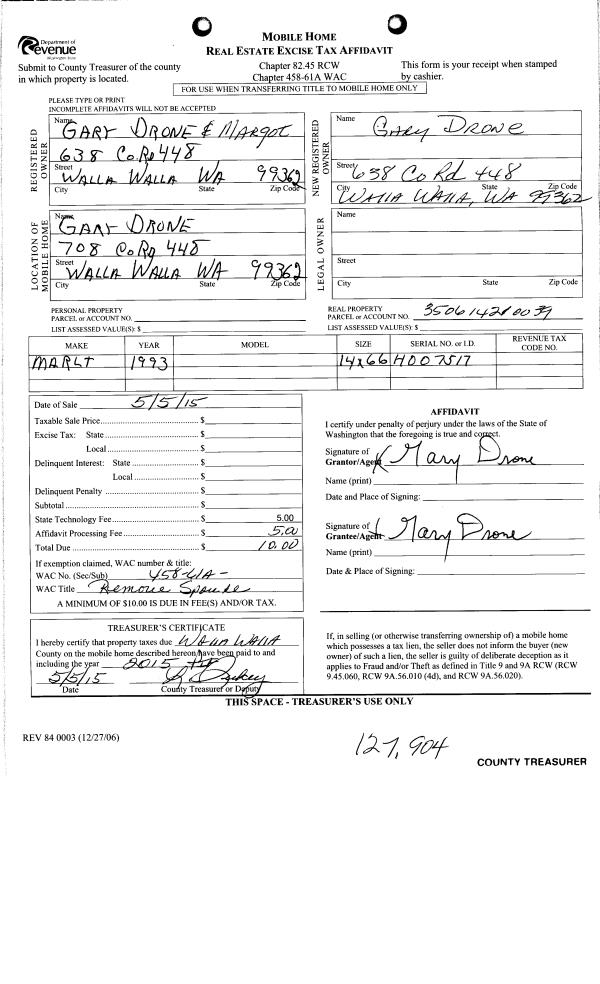 Department of
Revenue
Washington State
MOBILE HOME
REAL ESTATE EXCISE TAX AFFIDAVIT
Submit to County Treasurer of the county
in which property is located.
Chapter 82.45 RCW
Chapter 458-61A WAC
This form is your receipt when stamped
by cashier.
FOR USE WHEN TRANSFERRING TITLE TO MOBILE HOME ONLY
PLEASE TYPE OR PRINT
INCOMPLETE AFFIDAVITS WILL NOT BE ACCEPTED
REGISTERED OWNER
Name GARY DRONE & MARGOT
638 Co.Rd 448
Street WALLA WALLA WA 99362
City State Zip Code
NEW REGISTERED OWNER
Name Gary Drone
Street 638 Co Rd 448
City State Zip Code
Walla Walla, WA 99362
LOCATION OF MOBILE HOME
Name GARY DRONE
708 Co Rd 448
Street WALLA WALLA WA 99362
City State Zip Code
LEGAL OWNER
Name
Street
City State Zip Code
PERSONAL PROPERTY
PARCEL or ACCOUNT NO.
LIST ASSESSED VALUE(S): $
REAL PROPERTY
PARCEL or ACCOUNT NO.
LIST ASSESSED VALUE(S): $
MAKE YEAR MODEL SIZE SERIAL NO. or I.D. REVENUE TAX CODE NO.
MARLT 1993 14x66 H007517
Date of Sale 5/5/15
Taxable Sale Price $
Excise Tax: State $
Local $
Delinquent Interest: State $
Local $
Delinquent Penalty $
Subtotal $
State Technology Fee $ 5.00
Affidavit Processing Fee $ 5.00
Total Due $ 10.00
If exemption claimed, WAC number & title:
WAC No. (Sec/Sub) 458-61A-
WAC Title Remove Spouse
A MINIMUM OF $10.00 IS DUE IN FEE(S) AND/OR TAX.
AFFIDAVIT
I certify under penalty of perjury under the laws of the State of
Washington that the foregoing is true and correct.
Signature of
Grantor/Agent Gary Drone
Name (print)
Date and Place of Signing:
Signature of
Grantee/Agent Gary Drone
Name (print)
Date & Place of Signing:
TREASURER'S CERTIFICATE
I hereby certify that property taxes due Walla Walla
County on the mobile home described hereon have been paid to and
including the year 2015
5/5/15
Date County Treasurer or Deputy
If, in selling (or otherwise transferring ownership of) a mobile home
which possesses a tax lien, the seller does not inform the buyer (new
owner) of such a lien, the seller is guilty of deliberate deception as it
applies to Fraud and/or Theft as defined in Title 9 and 9A RCW (RCW
9.45.060, RCW 9A.56.010 (4d), and RCW 9A.56.020).
THIS SPACE - TREASURER'S USE ONLY
REV 84 0003 (12/27/06)
127,904
COUNTY TREASURER